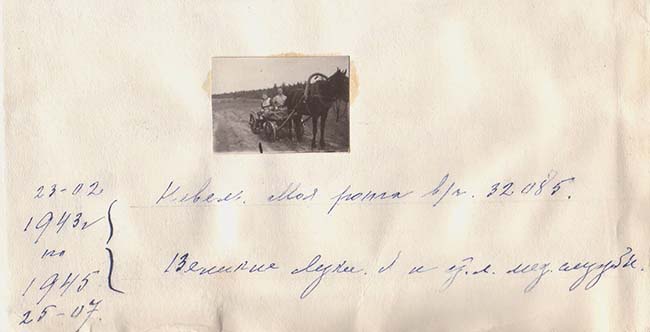 23-02
1943г
по
1945.
25-07.
Невель. Моя рота в/ч. 32085.
Великие Луки. Я и ст. л. мед. службы.